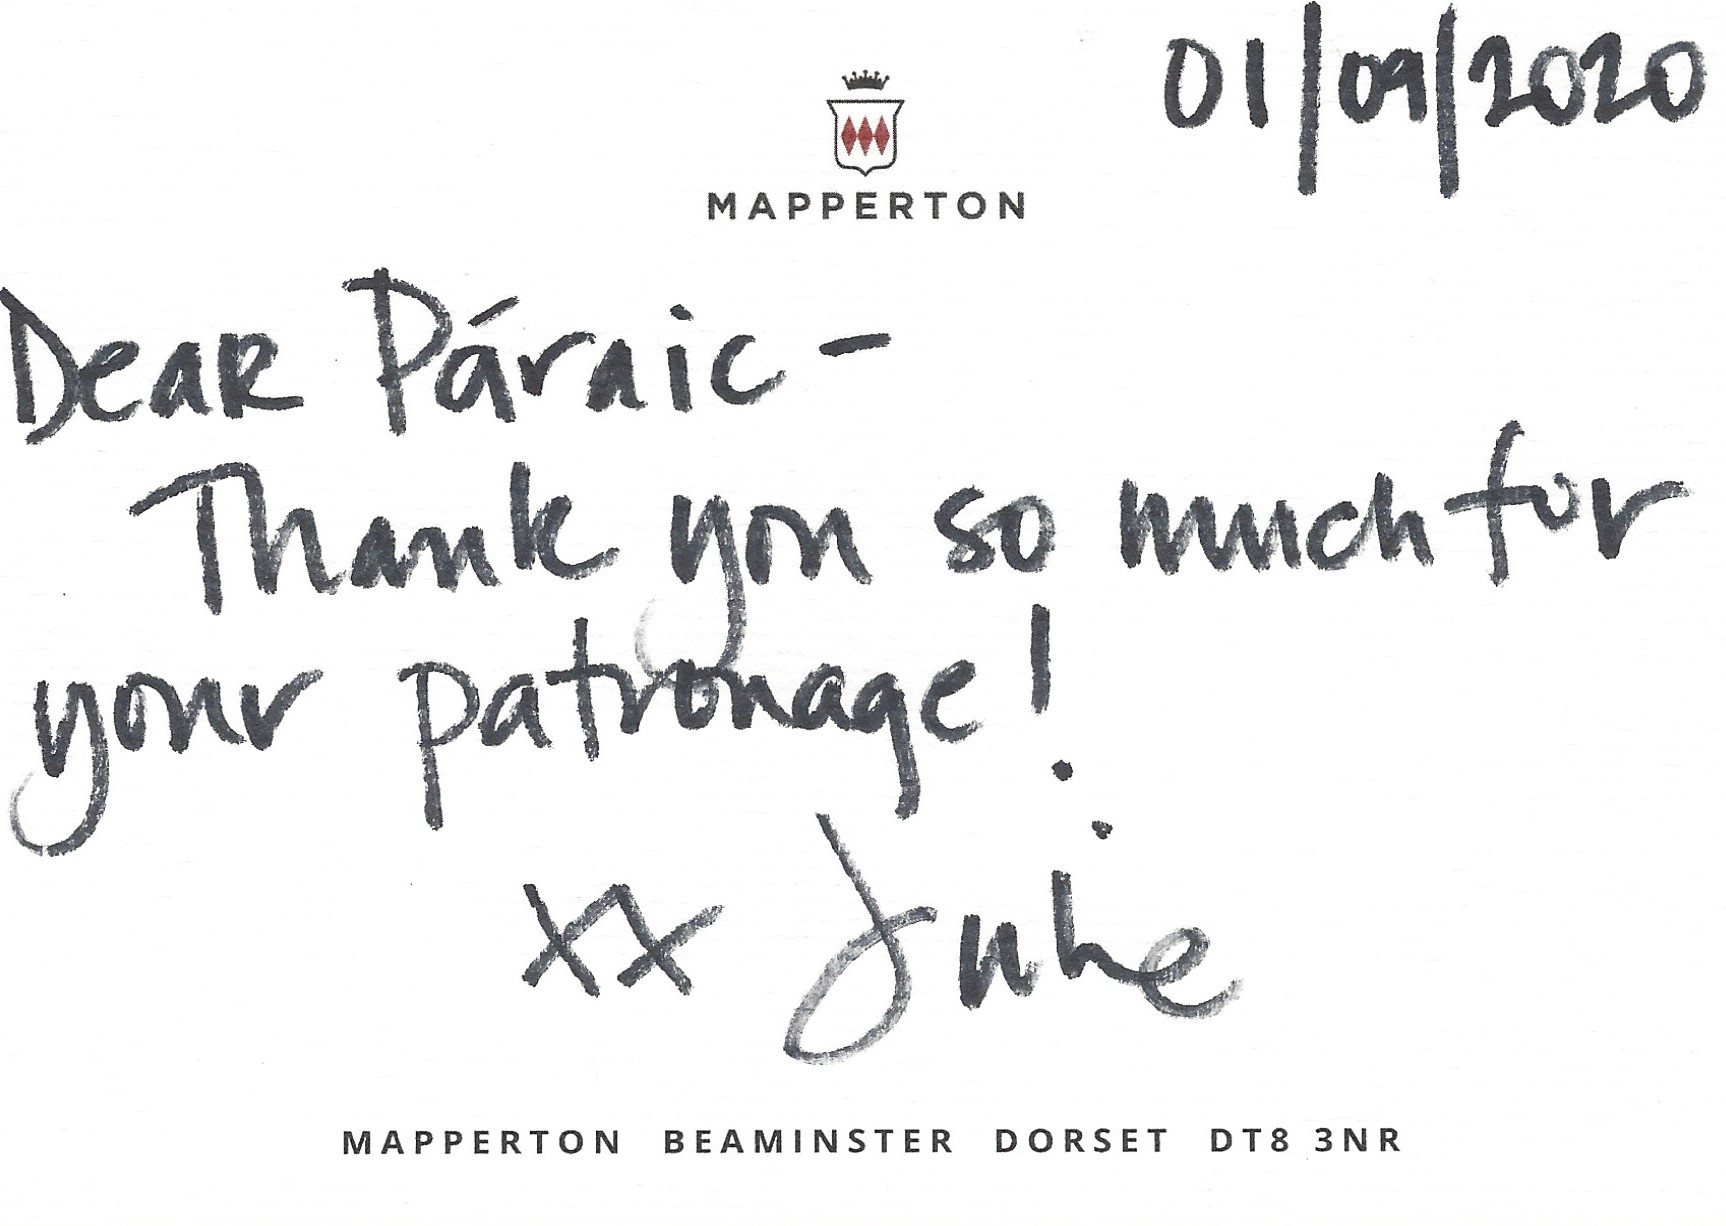 01/09/2020
MAPPERTON
Dear Páraic -
Thank you so much for
your patronage!
xx Julie
MAPPERTON BEAMINSTER DORSET DT8 3NR